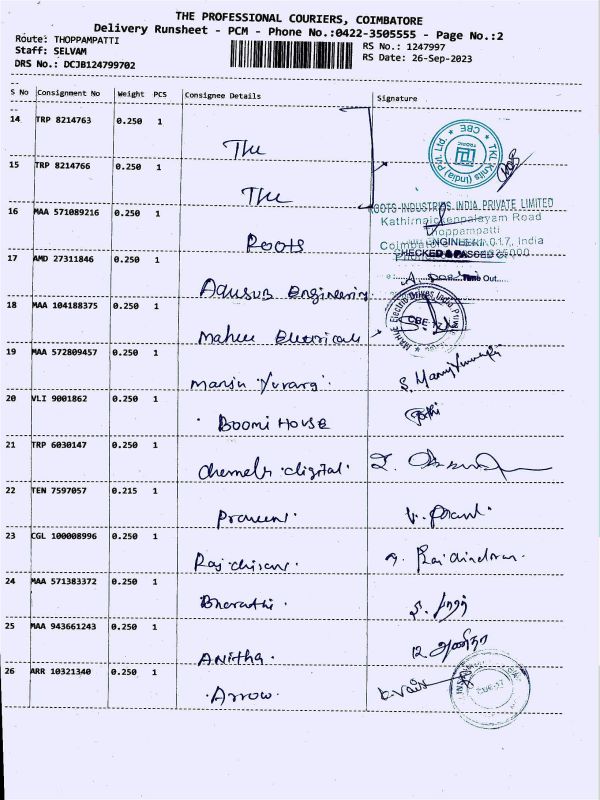 THE PROFESSIONAL COURIERS, COIMBATORE
Delivery Runsheet - PCM - Phone No.:0422-3505555 - Page No.:2
Route: THOPPAMPATTI
RS No.: 1247997
Staff: SELVAM
RS Date: 26-Sep-2023
DRS No.: DCJB124799702
S No Consignment No Weight PCS Consignee Details Signature
14 TRP 8214763 0.250 1 The
TKL Knits (India) Pvt Ltd
CBE
15 TRP 8214766 0.250 1 The
ROOTS INDUSTRIES INDIA PRIVATE LIMITED
Kathirnaickenpalayam Road
16 MAA 571089216 0.250 1 Roots
Thoppampatti
India
CHECKED & PASSED
17 AMD 27311846 0.250 1 Engineering
Time Out
18 MAA 104188375 0.250 1 Mahle Electricals
Electric Drives India Private
CBE
19 MAA 572809457 0.250 1
20 VLI 9001862 0.250 1 Boomi House
21 TRP 6030147 0.250 1 digital
22 TEN 7597057 0.215 1 Praveen
23 CGL 100008996 0.250 1
24 MAA 571383372 0.250 1 Bharathi
25 MAA 943661243 0.250 1 Anitha
அனிதா
26 ARR 10321340 0.250 1 Arrow